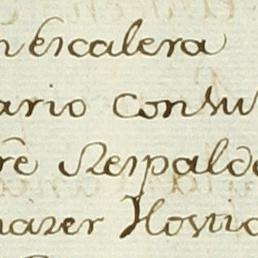 n escalera
ario con su
re Respald
hazer Hostia